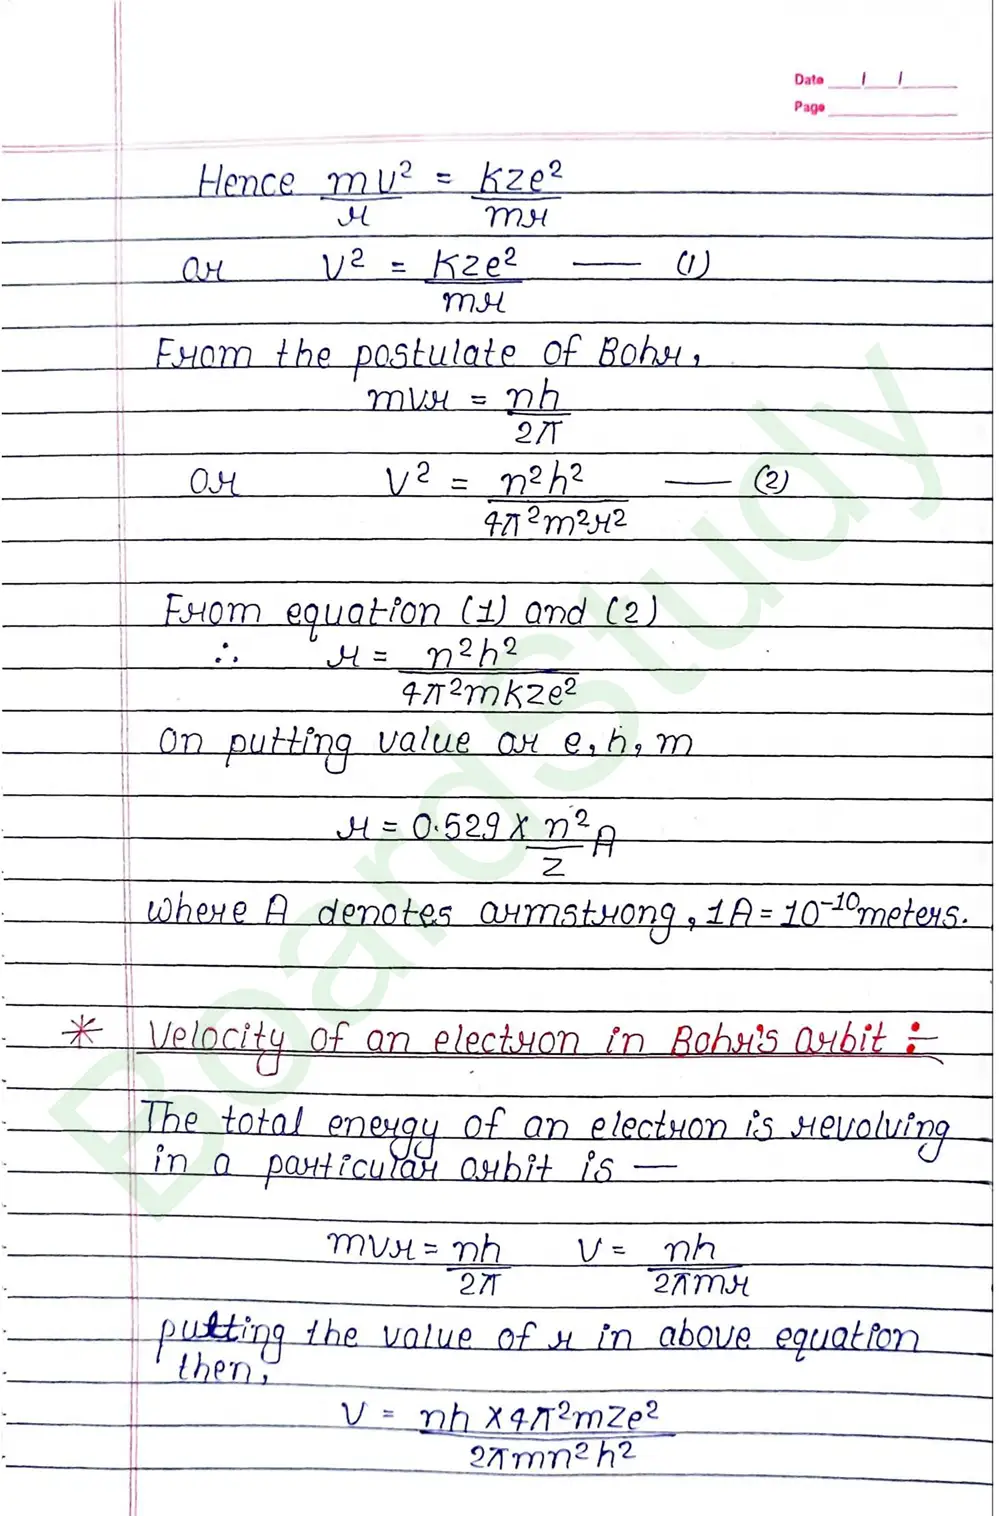 Date __/__/____
Page ________
Hence mv²/r = kze²/mr
or v² = kze²/mr —— (1)
From the postulate of Bohr,
mvr = nh/2π
or v² = n²h²/4π²m²r² —— (2)
From equation (1) and (2)
∴ r = n²h²/4π²mkze²
on putting value or e, h, m
r = 0.529 × n²/z A
where A denotes armstrong, 1A = 10⁻¹⁰meters.
* Velocity of an electron in Bohr's orbit :-
The total energy of an electron is revolving
in a particular orbit is —
mvr = nh/2π v = nh/2πmr
putting the value of r in above equation
then,
v = nh × 4π²mze²/2πmn²h²
BoardStudy